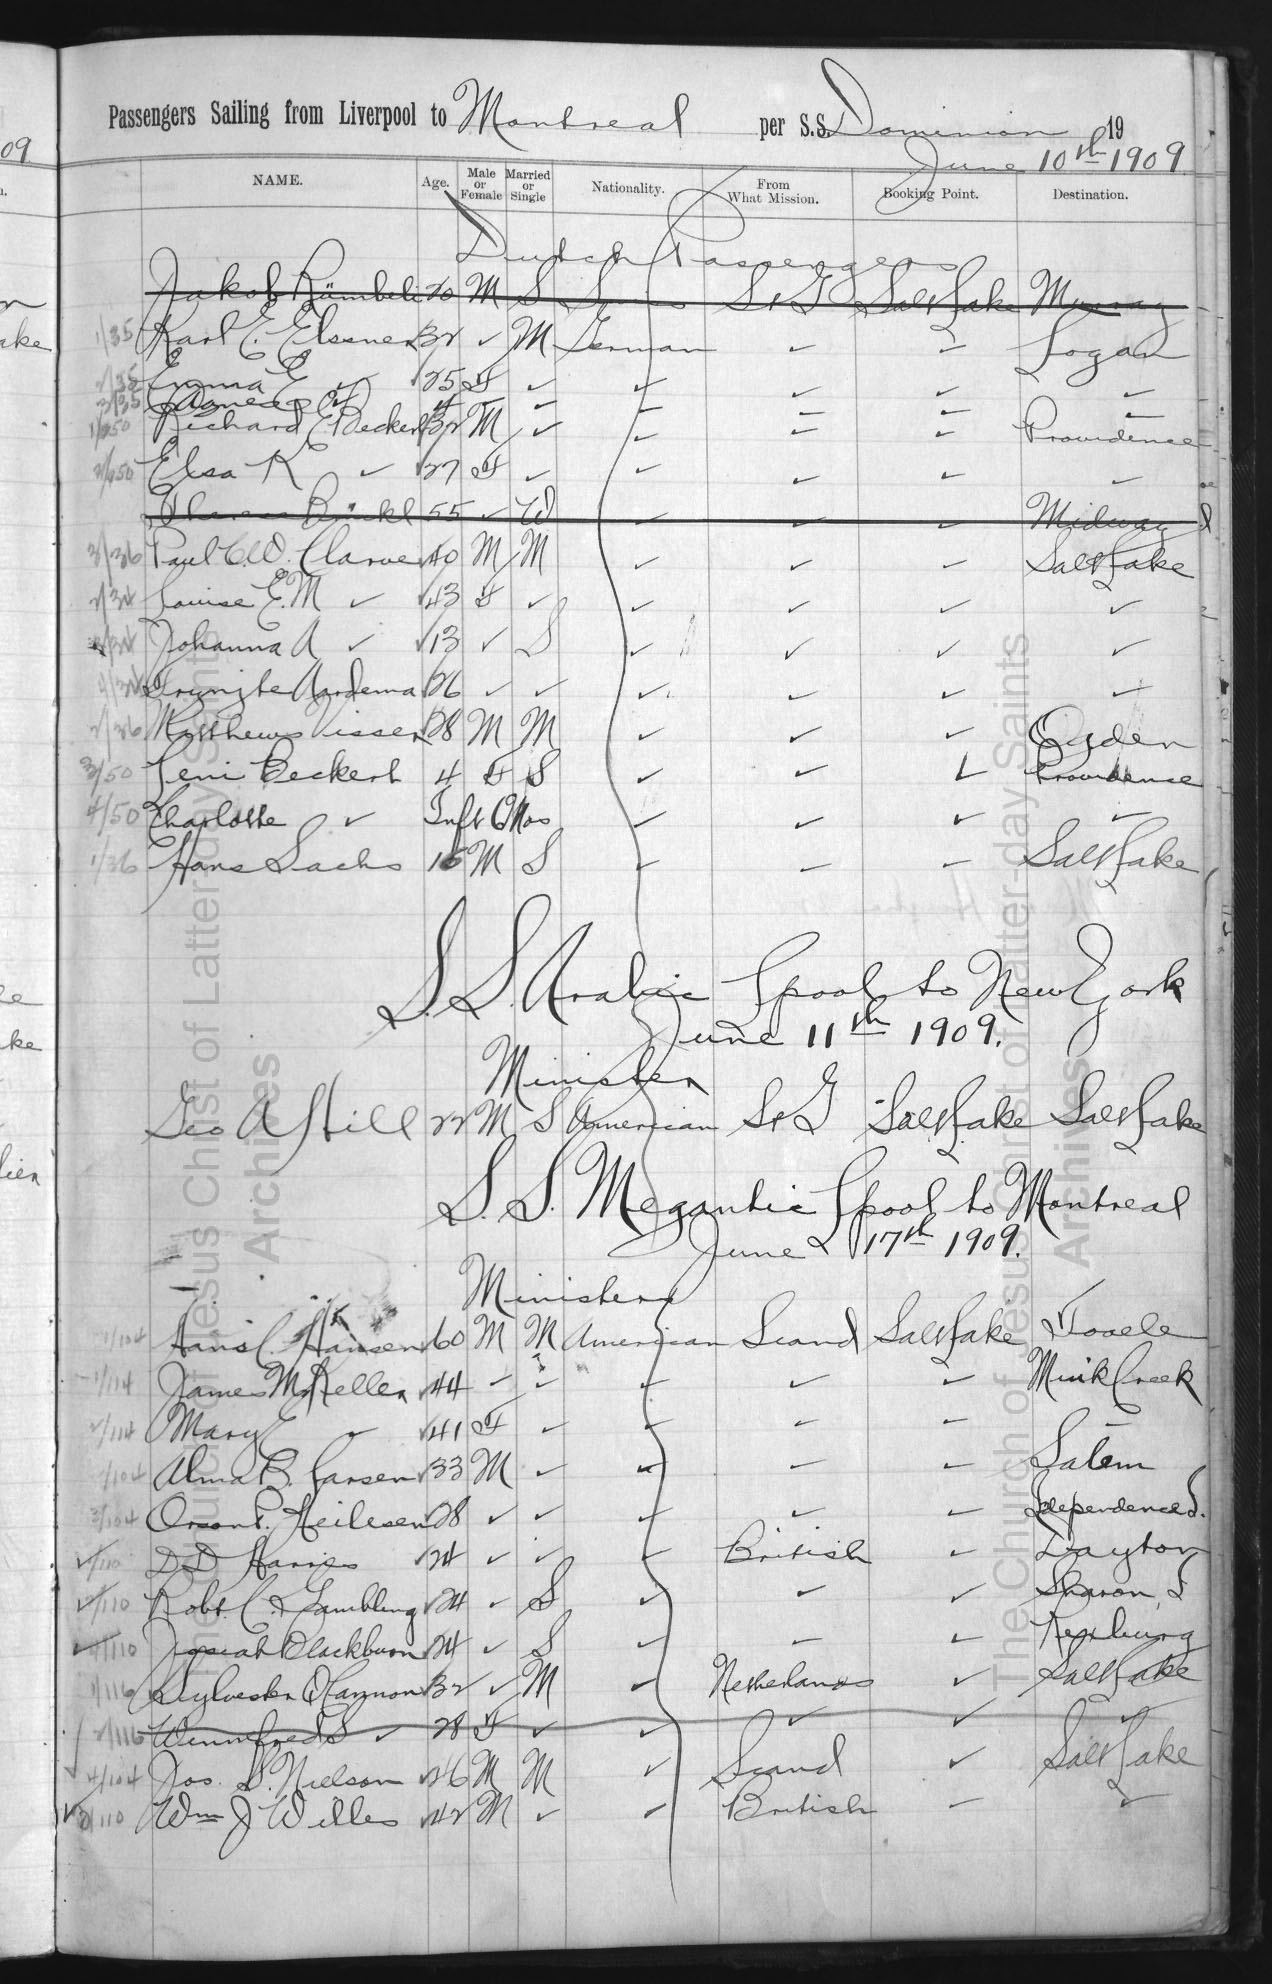 Passengers Sailing from Liverpool to Montreal per S.S. Dominion 19
June 10th 1909
NAME. Age. Male or Female Married or Single Nationality. From What Mission. Booking Point. Destination.
Dutch Passengers
Jakob Rümbeli 20 M S Swiss S & G Salt Lake Murray
1/35 Karl E. Elssner 32 ✓ M German ✓ ✓ Logan
2/35 Emma E ✓ 25 F ✓ ✓ ✓ ✓ ✓
3/35 Agnes
1/250 Richard E. Beckert 32 M ✓ ✓ Providence
2/650 Elsa K ✓ 27 F ✓ ✓ ✓ ✓ ✓
55 ✓ W ✓ ✓ ✓ Midway
Paul C.W. 40 M M ✓ ✓ ✓ Salt Lake
Louise E.M ✓ 43 F ✓ ✓ ✓ ✓ ✓
Johanna A ✓ 13 ✓ S ✓ ✓ ✓ ✓
Aardema 26 ✓ ✓ ✓ ✓ ✓ ✓
2/36 Matthews Visser 28 M M ✓ ✓ ✓ Ogden
3/50 Leni Beckert 4 F S ✓ ✓ ✓ Providence
4/50 Charlotte ✓ Inft 6 Mos ✓ ✓ ✓ ✓
1/36 Hans Sachs 16 M S ✓ ✓ ✓ Salt Lake
S.S. Arabic Lpool to New York
June 11th 1909.
Minister
Geo A Still 22 M S American S & G Salt Lake Salt Lake
S.S. Megantic Lpool to Montreal
June 17th 1909.
Ministers
1/104 Hans C. Hansen 60 M M American Scand Salt Lake Tooele
1/114 James M Keller 44 ✓ ✓ ✓ ✓ ✓ Mink Creek
2/114 Mary E ✓ 41 F ✓ ✓ ✓ ✓
/104 Alma B. Larsen 33 M ✓ ✓ ✓ ✓ Salem
3/104 Orson P. Neilesen 28 ✓ ✓ ✓ ✓ ✓ Idependence I.
/110 D D Harris 24 ✓ ✓ ✓ British ✓ Layton
/110 Robt. C. Gambling 24 ✓ S ✓ ✓ ✓ Sharon, I
/110 Josiah Blackburn 24 ✓ S ✓ ✓ ✓ Rexburg
1/116 Sylvester Q Cannon 32 ✓ M ✓ Netherlands ✓ Salt Lake
2/116 Winnifred S ✓ 28 F ✓ ✓ ✓ ✓ ✓
4/104 Jos. S. Nielson 26 M M ✓ Scand ✓ Salt Lake
/110 Wm J Willes 42 M ✓ ✓ British ✓ ✓
The Church of Jesus Christ of Latter-day Saints
Archives
The Church of Jesus Christ of Latter-day Saints
Archives